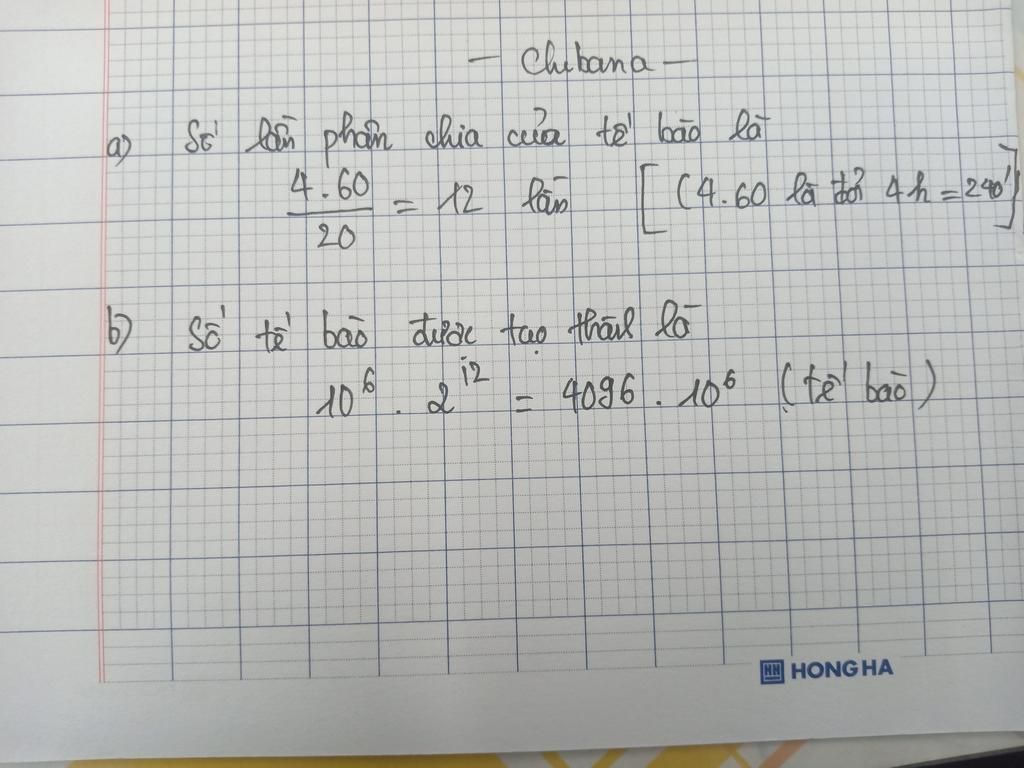 — Chibana —
a) Số lần phân chia của tế bào là
4.60 / 20 = 12 lần [(4.60 là đổi 4h = 240')]
b) Số tế bào được tạo thành là
10⁶ . 2¹² = 4096 . 10⁶ (tế bào)
HONG HA